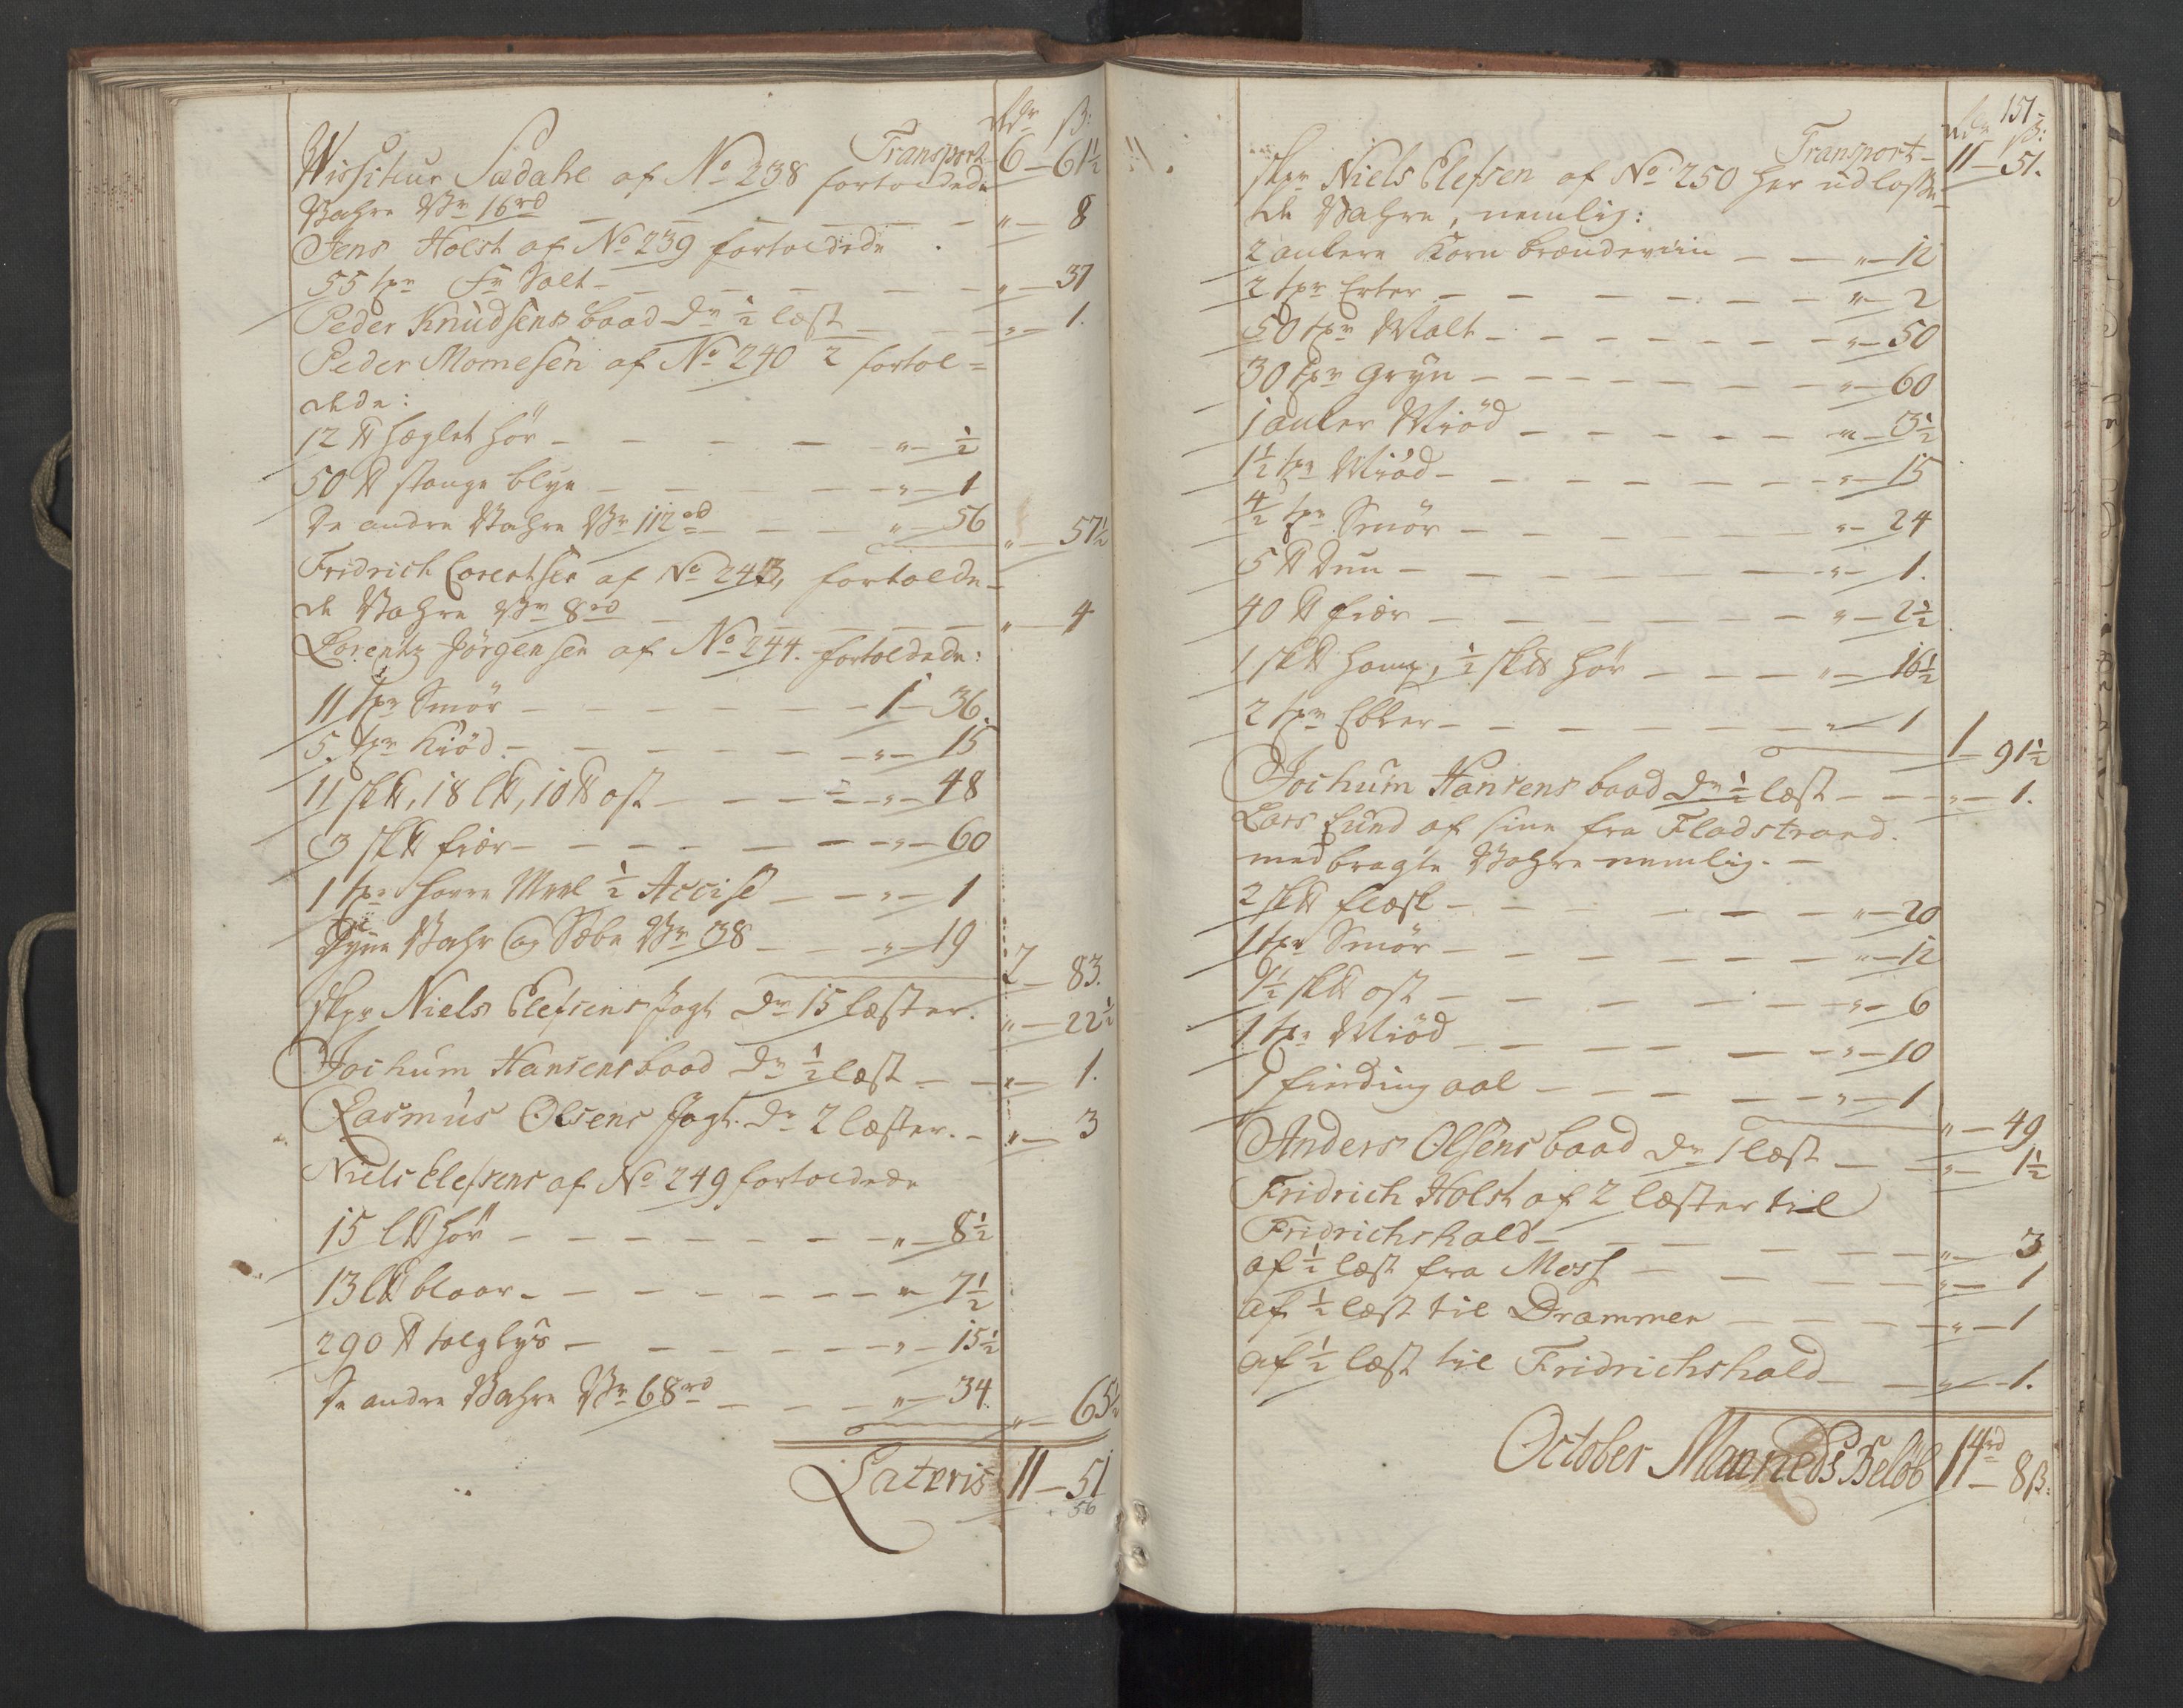 rdr ß:
Transport 6 — 61½
Visiteur Sædahl af No 238 fortoldede
Vahre Vr 16rd — — — „ — 8
Jens Holst af No 239 fortoldede
55 tpr Fr Salt — — — „ — 37
Peder Knudsens baad dr ½ læst — — „ — 1.
Peder Momesen af No 240 2 fortol=
dede:
12 ℔ heglet hör — — — „ — ½
50 ℔ stange blye — — — „ — 1
De andre Vahre Vr 112rd — — „ — 56 „ — 57½
Fridrich Lorentsen af No 243, fortolde-
de Vahre Vr 8rd — — — „ — 4
Lorentz Jörgensen af No 244. fortoldede:
11 tpr Smör — — — 1 — 36.
5. tpr Kiöd — — — „ — 15
11 sk℔, 18 l℔, 10 ℔ ost — — „ — 48
3 sk℔ fier — — — „ — 60
1 tpr havre Meel ½ Accise — — „ — 1
Vahr og Sæbe Vr 38 — — „ — 19 2 — 83.
Skpr Niels Elefsens Jagt dr 15 læster. „ — 22½
Jochum Hansens baad dr ½ læst — — „ — 1.
Rasmus Olsens Jagt. dr 2 læster. — „ — 3
Niels Elefsens af No 249 fortoldede
15 l℔ hör — — — „ — 8½
13 l℔ blaar — — — „ — 7½
290 ℔ talglys — — — „ — 15½
De andre Vahre Vr 68rd — — „ — 34. „ — 65½
Lateris 11 — 51
56
151
rdr ß:
Transport — 11 — 51.
Skpr Niels Elefsen af No 250 her udlosse-
de Vahre, nemlig:
2 ankere Korn brændeviin — — „ — 12
2 tpr Erter — — — „ — 2
50 tpr Malt — — — „ — 50
30 tpr Gryn — — — „ — 60
1 anker Miöd — — — „ — 3½
1½ tpr Miöd — — — „ — 15
4/2 tpr Smör — — — „ — 24
5 ℔ Duun — — — „ — 1.
40 ℔ fier — — — „ — 2½
1 sk℔ hamp, ½ sk℔ hör — — — „ — 16½
2 tpr Ebler — — — „ — 1 1 — 91½
Jochum Hansens baad dr ½ læst — — „ — 1.
Lars Lund af sine fra Fladstrand.
medbragte Vahre nemlig. —
2 sk℔ flæsk — — — „ — 20
1 tpr Smör — — — „ — 12
1½ sk℔ ost — — — „ — 6
1 tpr Miöd — — — „ — 10
1 fierding aal — — — „ — 1 „ — 49
Anders Olsens baad dr 1 læst — — „ — 1½
Fridrich Holst af 2 læster til
Fridrichshald — — — „ — 3
af ½ læst fra Moss — — — „ — 1
af ½ læst til Drammen — — — „ — 1
af ½ læst til Fridrichshald — — „ — 1.
October Maaneds Beløb 14rd — 8ß.